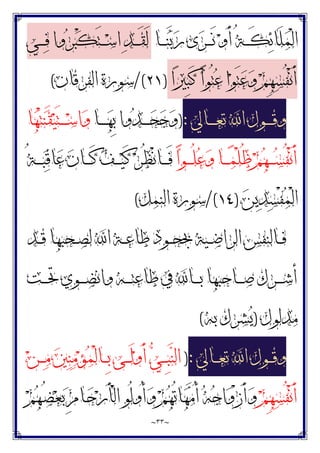 الْمَلَائِكَةُ أَوْ نَرَىٰ رَبَّنَا لَقَدِ اسْتَكْبَرُوا فِي
أَنفُسِهِمْ وَعَتَوْا عُتُوًّا كَبِيرًا (٢١)/سورة الفرقان)
وقول الله تعالى :(وَجَحَدُوا بِهَا وَاسْتَيْقَنَتْهَا
أَنفُسُهُمْ ظُلْمًا وَعُلُوًّا فَانظُرْ كَيْفَ كَانَ عَاقِبَةُ
الْمُفْسِدِينَ (١٤)/سورة النمل)
فالنفس الراضية بجحود طاعة الله لصاحبها قد
أشرك صاحبها بالله في طاعته وانضوى تحت
مدلول (يُشرك به)
وقول الله تعالى :( النَّبِيُّ أَوْلَىٰ بِالْمُؤْمِنِينَ مِنْ
أَنفُسِهِمْ وَأَزْوَاجُهُ أُمَّهَاتُهُمْ وَأُولُو الْأَرْحَامِ بَعْضُهُمْ
~٣٣~